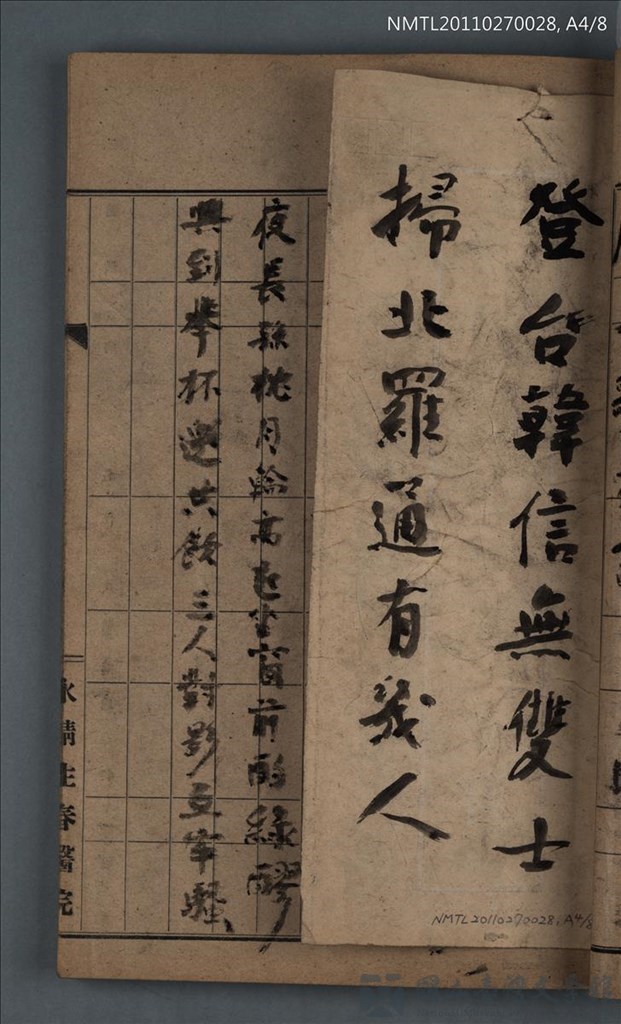 NMTL20110270028, A4/8
登台韓信無雙士
掃北羅通有幾人
NMTL20110270028, A4/8
夜長 挑月輪高起坐窗前酌綠醪
興到擧杯邀共飲三人對影互牢騷
永靖 春醫院